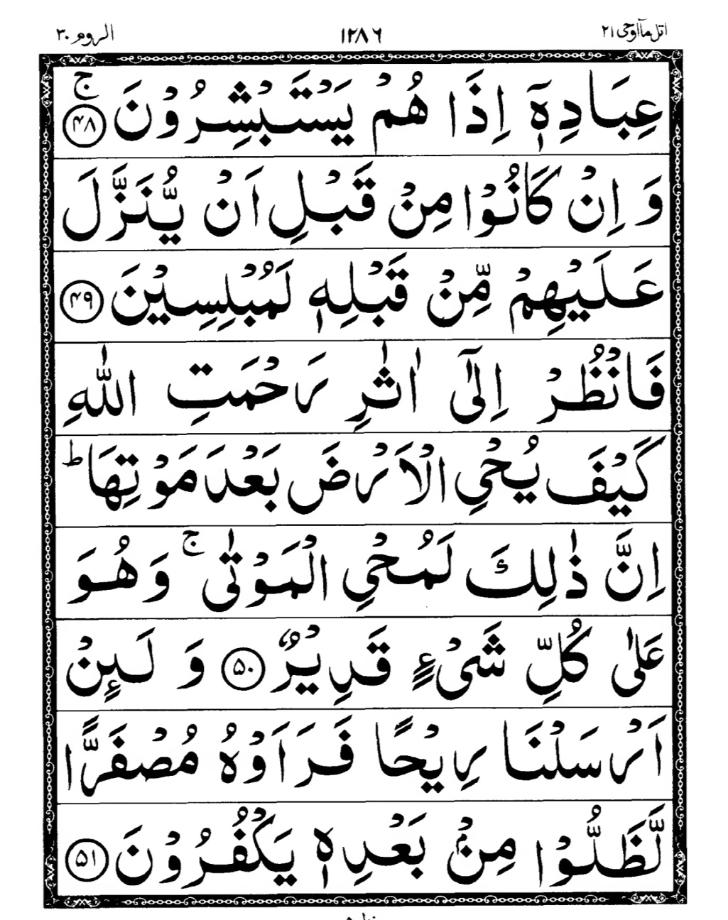 اتل مآاوحی ۲۱ ۱۲۸۶ الروم ۳۰
عِبَادِهٖۤ اِذَا هُمْ يَسْتَبْشِرُوْنَ ۚ ﴿۴۸﴾
وَ اِنْ كَانُوْا مِنْ قَبْلِ اَنْ يُّنَزَّلَ
عَلَيْهِمْ مِّنْ قَبْلِهٖ لَمُبْلِسِيْنَ ﴿۴۹﴾
فَانْظُرْ اِلٰۤى اٰثٰرِ رَحْمَتِ اللّٰهِ
كَيْفَ يُحْيِ الْاَرْضَ بَعْدَ مَوْتِهَا ؕ
اِنَّ ذٰلِكَ لَمُحْيِ الْمَوْتٰى ۚ وَ هُوَ
عَلٰى كُلِّ شَیْءٍ قَدِيْرٌ ﴿۵۰﴾ وَ لَىِٕنْ
اَرْسَلْنَا رِيْحًا فَرَاَوْهُ مُصْفَرًّا
لَّظَلُّوْا مِنْۢ بَعْدِهٖ يَكْفُرُوْنَ ﴿۵۱﴾